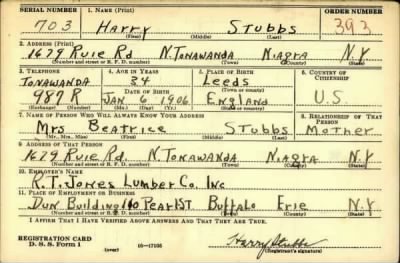 SERIAL NUMBER 1. NAME (Print) ORDER NUMBER
703 Harry Stubbs 393
(First) (Middle) (Last)
2. ADDRESS (Print)
1679 Ruie Rd N. Tonawanda Niagra N.Y
(Number and street or R. F. D. number) (Town) (County) (State)
3. TELEPHONE 4. AGE IN YEARS 5. PLACE OF BIRTH 6. COUNTRY OF CITIZENSHIP
Tonawanda 34 Leeds
DATE OF BIRTH (Town or county)
987 R Jan 6 1906 England U.S.
(Exchange) (Number) (Mo.) (Day) (Yr.) (State or country)
7. NAME OF PERSON WHO WILL ALWAYS KNOW YOUR ADDRESS 8. RELATIONSHIP OF THAT PERSON
Mrs Beatrice Stubbs Mother
(Mr., Mrs., Miss) (First) (Middle) (Last)
9. ADDRESS OF THAT PERSON
1679 Ruie Rd. N. Tonawanda Niagra N.Y
(Number and street or R. F. D. number) (Town) (County) (State)
10. EMPLOYER'S NAME
R.T. Jones Lumber Co. Inc
11. PLACE OF EMPLOYMENT OR BUSINESS
Dun Building 110 Pearl St. Buffalo Erie N.Y
(Number and street or R. F. D. number) (Town) (County) (State)
I AFFIRM THAT I HAVE VERIFIED ABOVE ANSWERS AND THAT THEY ARE TRUE.
REGISTRATION CARD
D. S. S. Form 1 16-17105 Harry Stubbs
(Registrant's signature)